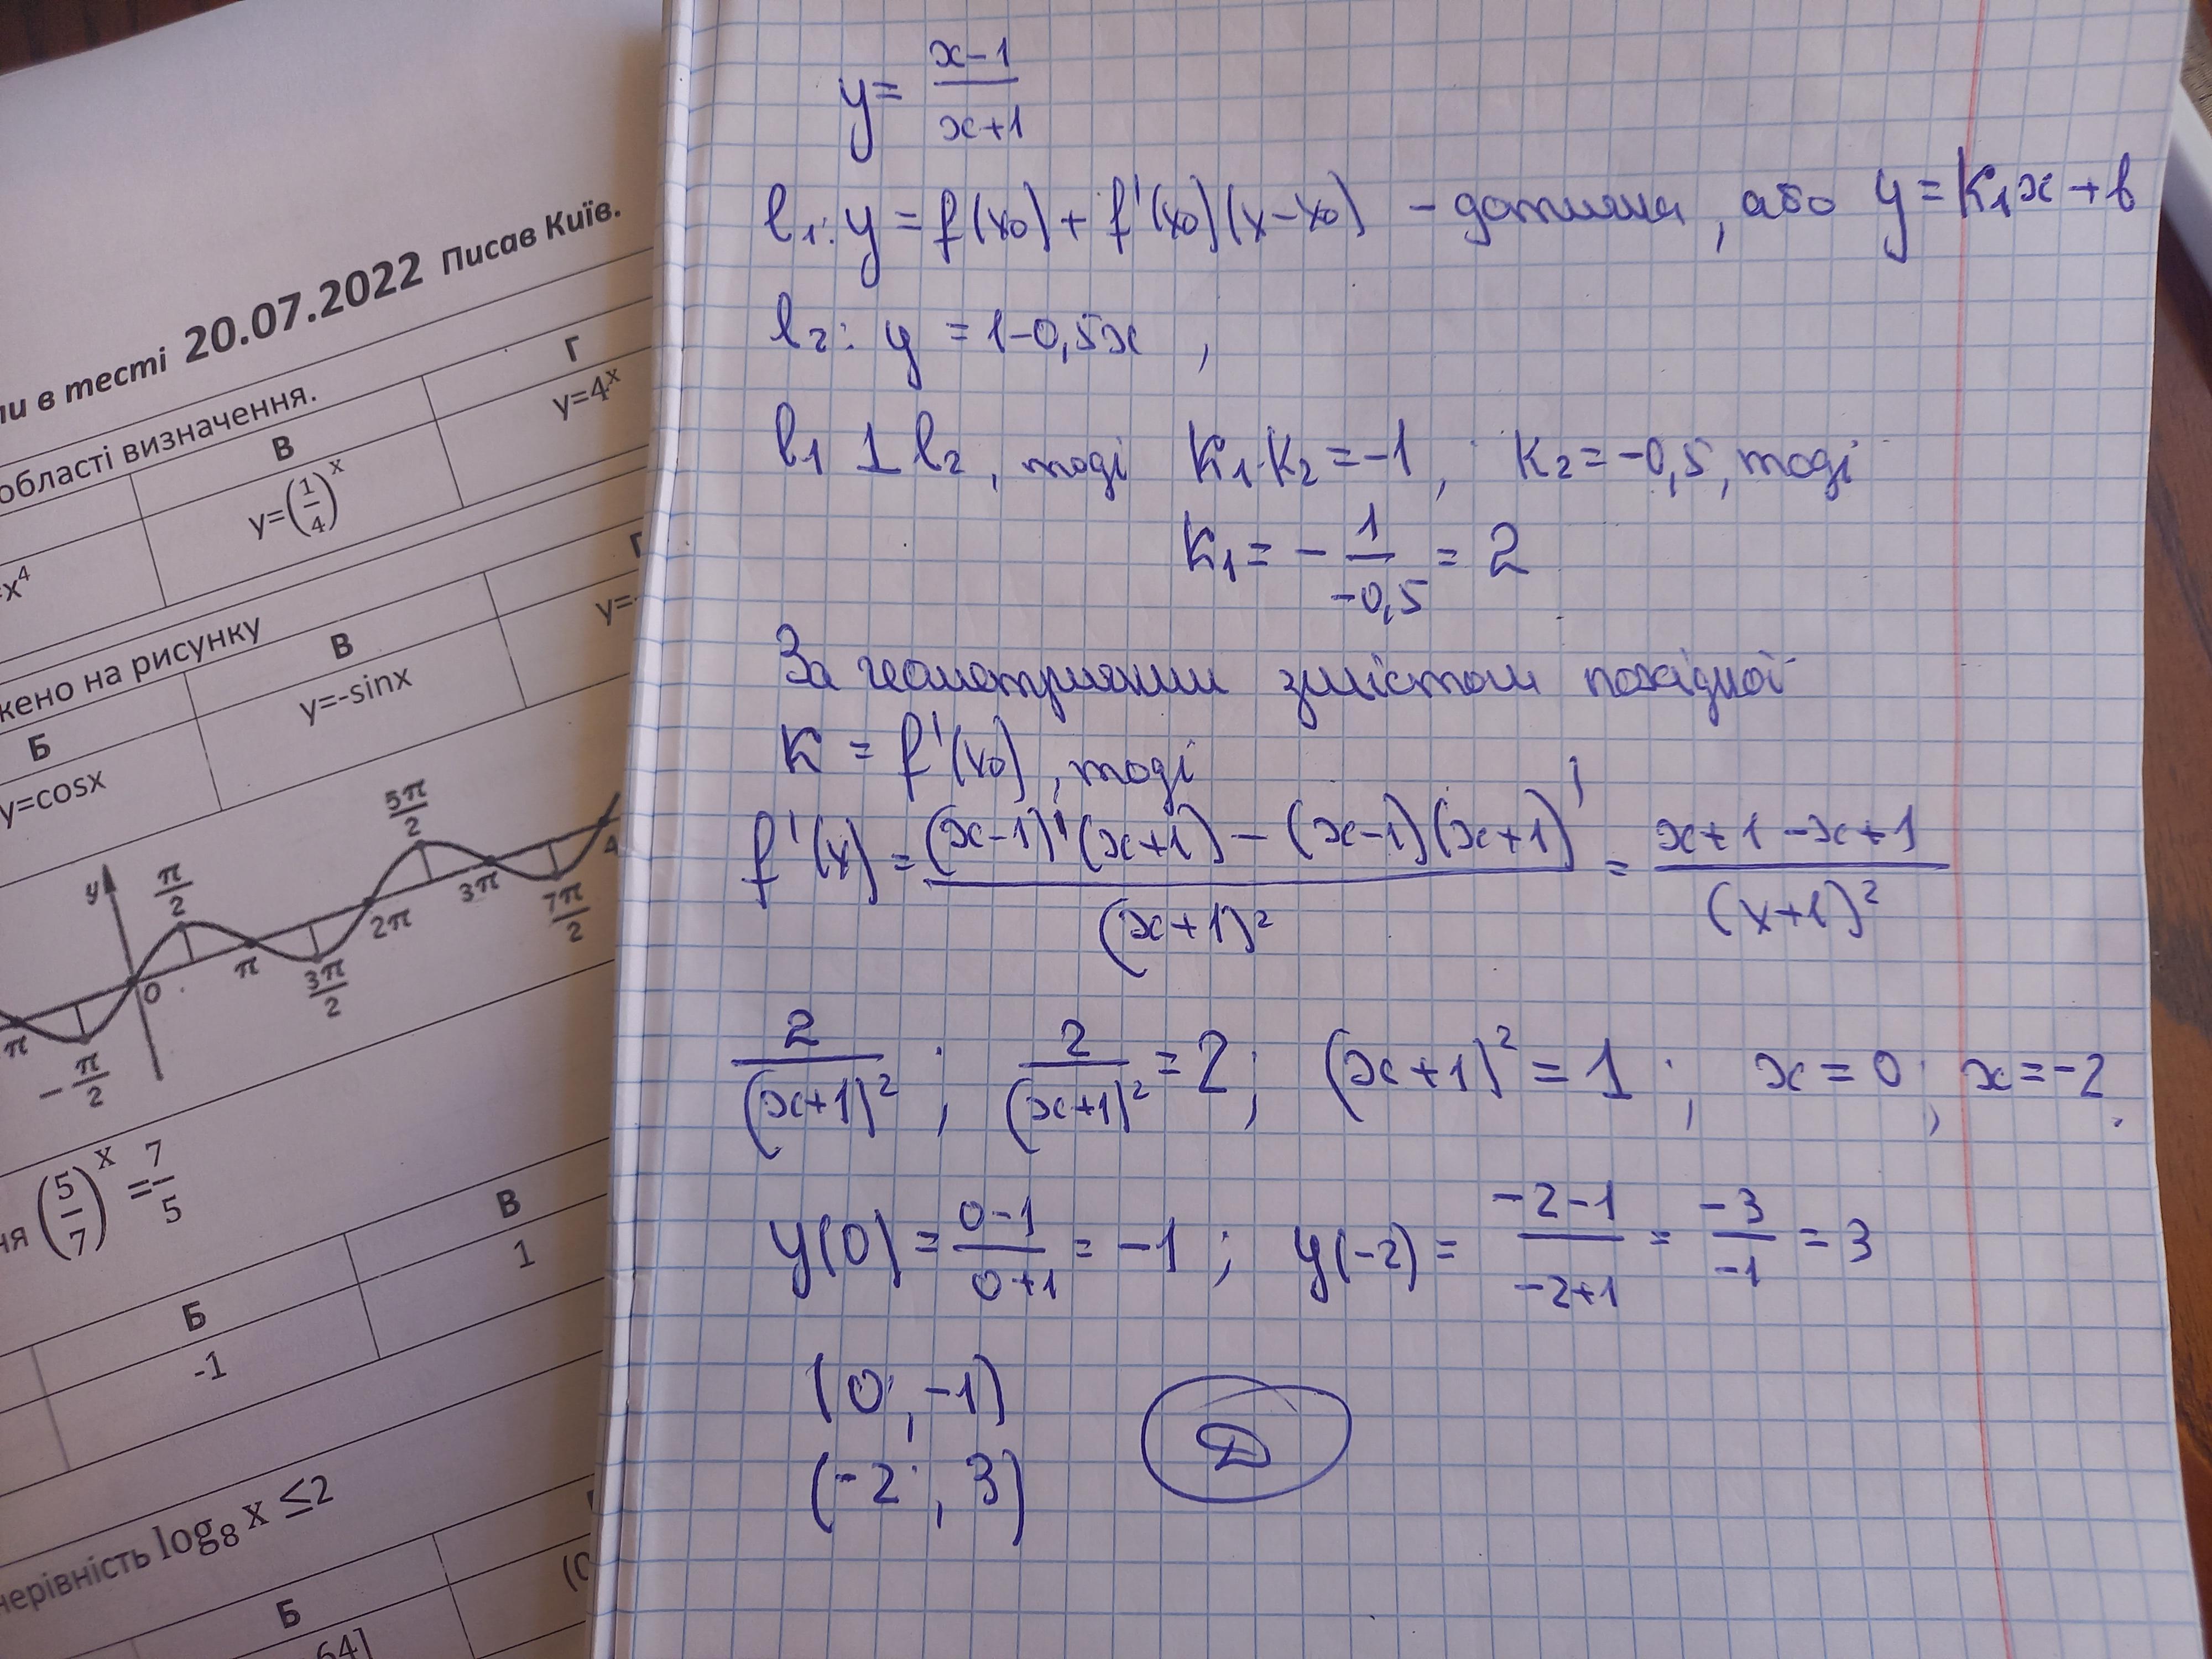 ли в тесті 20.07.2022 Писав Київ.
області визначення.
В
Г
=x⁴
y=(1/4)ˣ
y=4ˣ
жено на рисунку
Б
В
Г
y=cosx
y=-sinx
y=-
y
π/2
5π/2
π
3π/2
2π
3π
7π/2
4
0
π
-π/2
ня (5/7)ˣ =7/5
Б
В
-1
1
нерівність log₈ x ≤2
Б
64]
(0
y = (x-1)/(x+1)
l₁: y = f(x₀) + f'(x₀)(x-x₀) - дотична, або y = k₁x + b
l₂: y = 1-0,5x ,
l₁ ⊥ l₂, тоді k₁·k₂ = -1; k₂ = -0,5, тоді
k₁ = - 1/(-0,5) = 2
За геометричним змістом похідної
k = f'(x₀), тоді
f'(x) = ((x-1)'(x+1) - (x-1)(x+1)')/(x+1)² = (x+1-x+1)/(x+1)²
2/(x+1)² ; 2/(x+1)² = 2; (x+1)² = 1; x = 0; x = -2.
y(0) = (0-1)/(0+1) = -1 ; y(-2) = (-2-1)/(-2+1) = (-3)/(-1) = 3
(0; -1)
(-2; 3)
Д